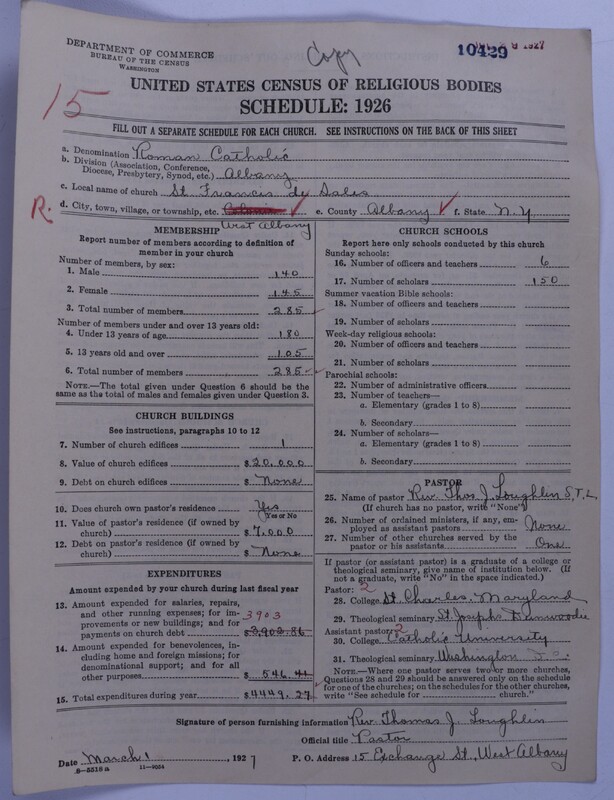 DEPARTMENT OF COMMERCE
BUREAU OF THE CENSUS
WASHINGTON
Copy
10429
15
UNITED STATES CENSUS OF RELIGIOUS BODIES
SCHEDULE: 1926
FILL OUT A SEPARATE SCHEDULE FOR EACH CHURCH. SEE INSTRUCTIONS ON THE BACK OF THIS SHEET
a. Denomination Roman Catholic
b. Division (Association, Conference,
Diocese, Presbytery, Synod, etc.) Albany
c. Local name of church St. Francis de Sales
R. d. City, town, village, or township, etc. Colonie e. County Albany f. State N.Y
West Albany
MEMBERSHIP
Report number of members according to definition of
member in your church
Number of members, by sex:
1. Male 140
2. Female 145
3. Total number of members 285
Number of members under and over 13 years old:
4. Under 13 years of age 180
5. 13 years old and over 105
6. Total number of members 285
NOTE.—The total given under Question 6 should be
the same as the total of males and females given under Question 3.
CHURCH BUILDINGS
See instructions, paragraphs 10 to 12
7. Number of church edifices 1
8. Value of church edifices $20,000
9. Debt on church edifices $ None
10. Does church own pastor's residence? Yes
Yes or No
11. Value of pastor's residence (if owned by
church) $7,000
12. Debt on pastor's residence (if owned by
church) $ None
EXPENDITURES
Amount expended by your church during last fiscal year
13. Amount expended for salaries, repairs,
and other running expenses; for im-
provements or new buildings; and for 3903
payments on church debt $3,902.86
14. Amount expended for benevolences, in-
cluding home and foreign missions; for
denominational support; and for all
other purposes $ 546.41
15. Total expenditures during year $4449.27
CHURCH SCHOOLS
Report here only schools conducted by this church
Sunday schools:
16. Number of officers and teachers 6
17. Number of scholars 150
Summer vacation Bible schools:
18. Number of officers and teachers
19. Number of scholars
Week-day religious schools:
20. Number of officers and teachers
21. Number of scholars
Parochial schools:
22. Number of administrative officers
23. Number of teachers—
a. Elementary (grades 1 to 8)
b. Secondary
24. Number of scholars—
a. Elementary (grades 1 to 8)
b. Secondary
PASTOR
25. Name of pastor Rev. Thos J. Loughlin S.T.L.
(If church has no pastor, write "None")
26. Number of ordained ministers, if any, em-
ployed as assistant pastors None
27. Number of other churches served by the
pastor or his assistants One
If pastor (or assistant pastor) is a graduate of a college or
theological seminary, give name of institution below. (If
not a graduate, write "No" in the space indicated.)
Pastor: 2
28. College St. Charles, Maryland
29. Theological seminary St Josephs Dunwoodie
Assistant pastor: 2
30. College Catholic University
31. Theological seminary Washington D.C.
NOTE.—Where one pastor serves two or more churches,
Questions 28 and 29 should be answered only on the schedule
for one of the churches; on the schedules for the other churches,
write "See schedule for church."
Signature of person furnishing information Rev. Thomas J. Loughlin
Official title Pastor
Date March 1, 1927 P. O. Address 15 Exchange St., West Albany
8-5518 a 11-9054